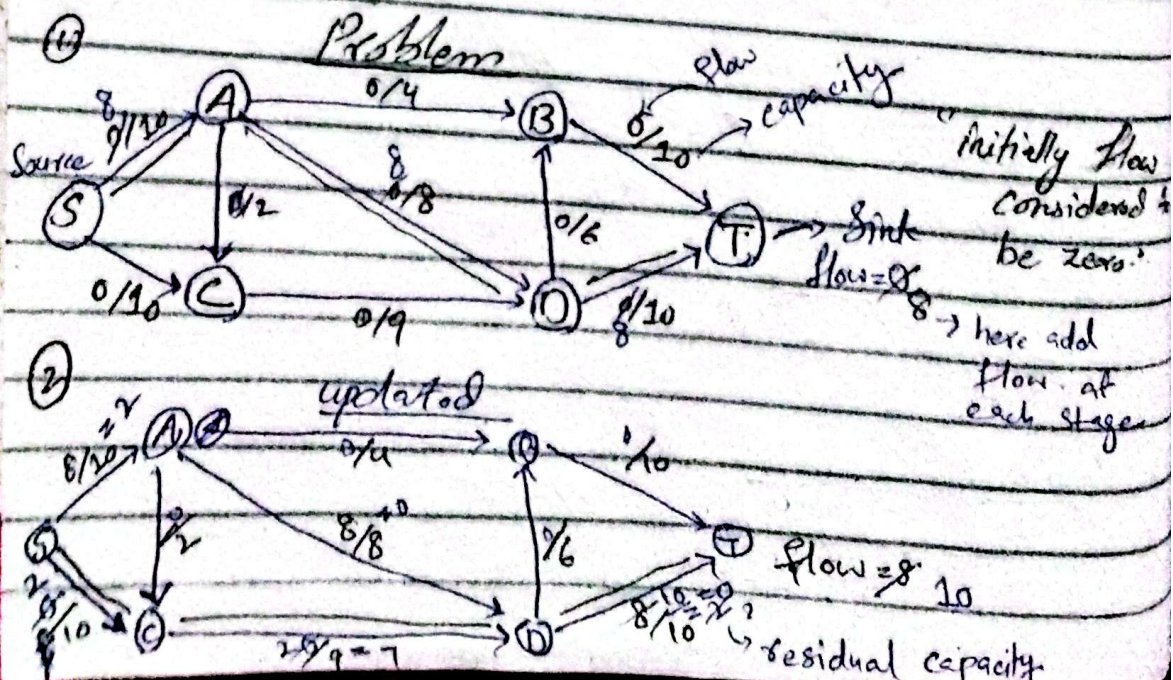 ①
Problem
flow
capacity
8
0/10
A
0/4
B
0/10
"initially flow
considered
be zero."
Source
S
0/2
8
0/8
0/6
T
Sink
flow=0
8 → here add
flow at
each stage
0/10
C
0/9
D
0/10
8
②
updated
8/10 = 2
A
0/4
B
0/10
0/2
8/8 = 0
0/6
S
T
flow = 8
10
2
0/10
C
2 0/9 = 7
D
8/10 = 2
10 = 0
residual capacity